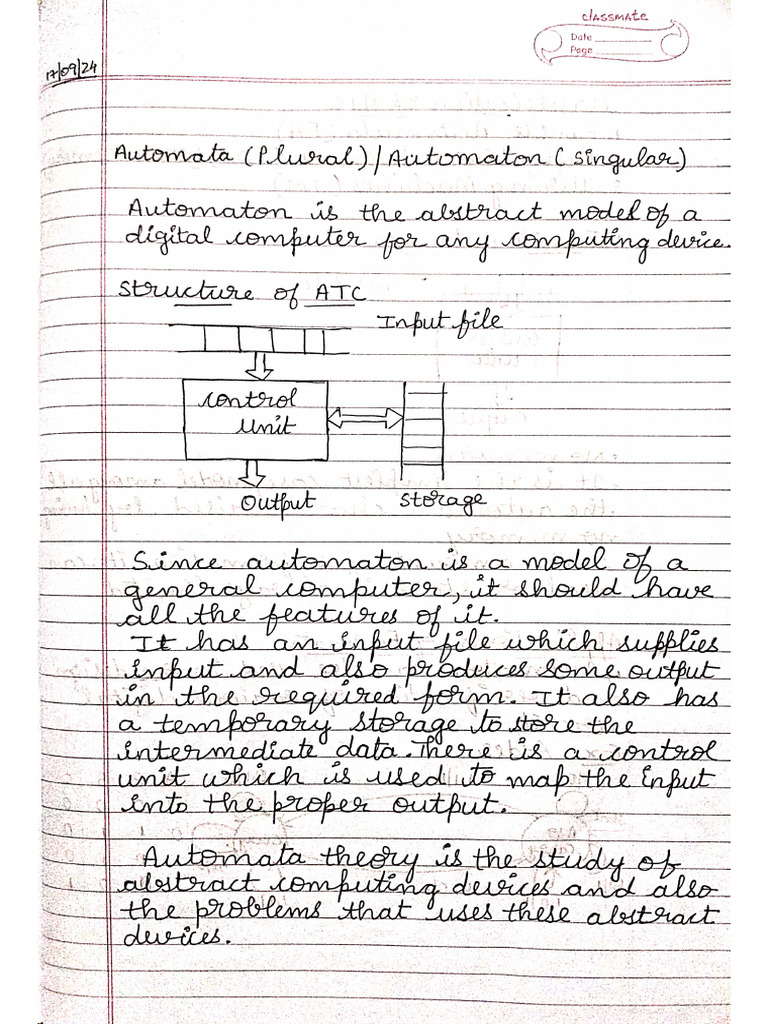 classmate
Date
Page
17/09/24
Automata (Plural) / Automaton (Singular)
Automaton is the abstract model of a
digital computer for any computing device.
Structure of ATC
Input file
Control
Unit
Output
Storage
Since automaton is a model of a
general computer, it should have
all the features of it.
It has an input file which supplies
input and also produces some output
in the required form. It also has
a temporary storage to store the
intermediate data. There is a control
unit which is used to map the input
into the proper output.
Automata theory is the study of
abstract computing devices and also
the problems that uses these abstract
devices.